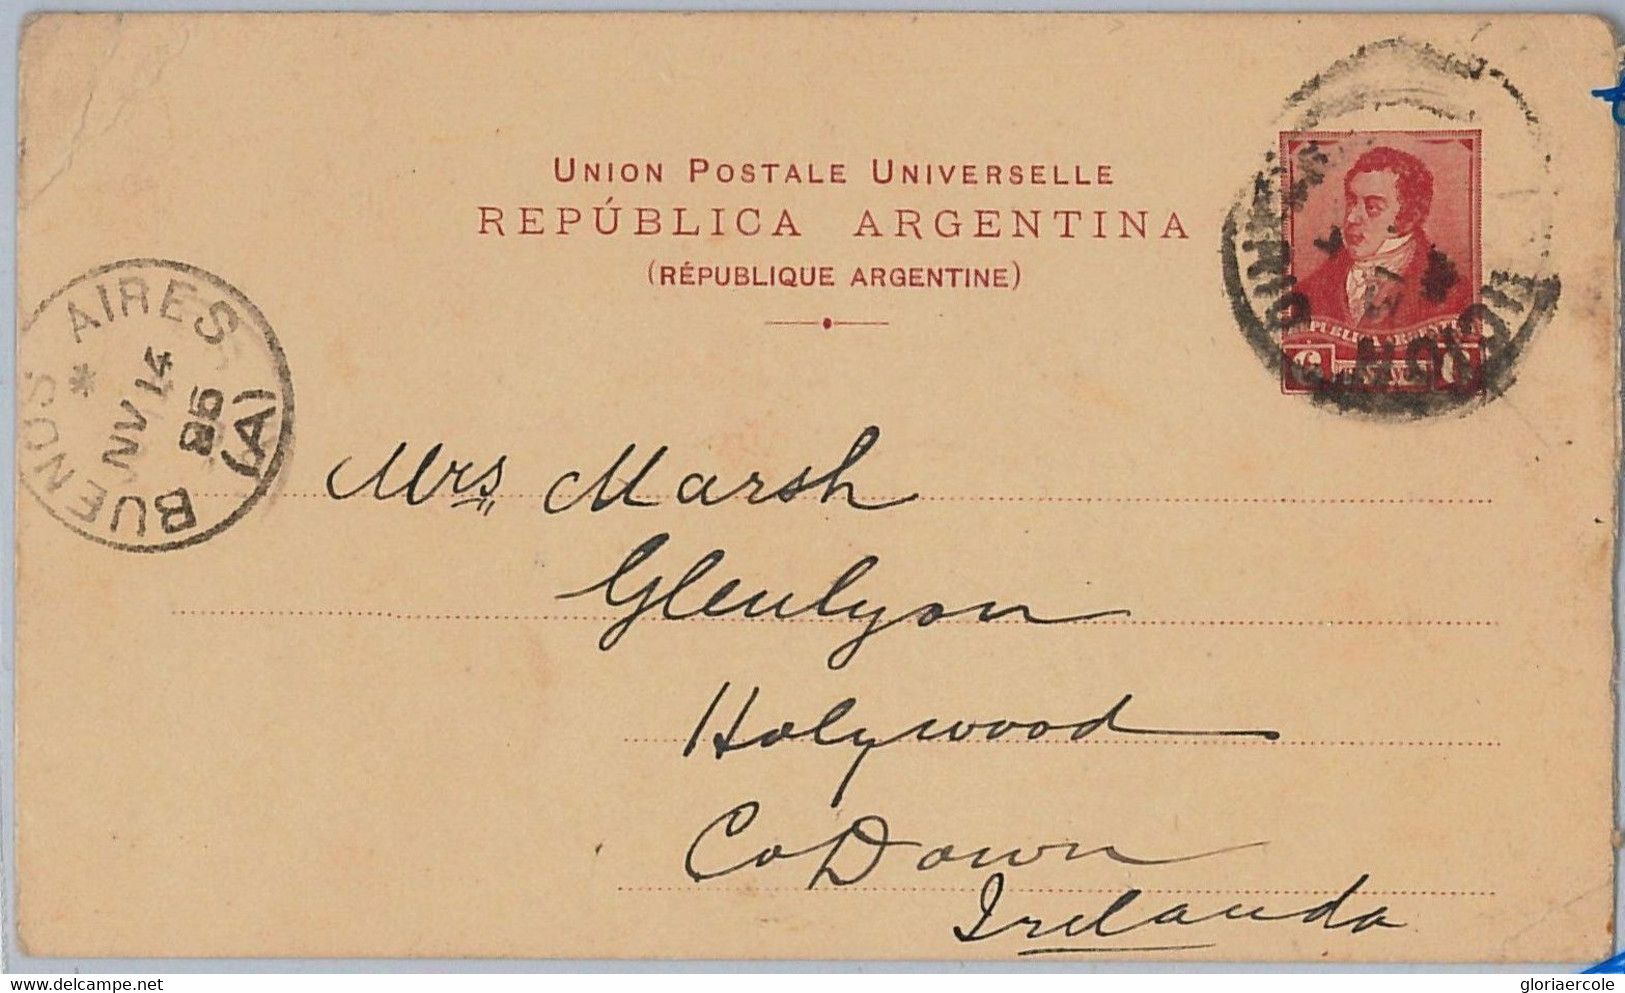 UNION POSTALE UNIVERSELLE
REPÚBLICA ARGENTINA
(RÉPUBLIQUE ARGENTINE)
BUENOS AIRES
* NV 14
(A)
CENTAVOS
Mrs, Marsh
Glenlyon
Holywood
Co Down
Irelanda
delcampe.net
gloriaercole